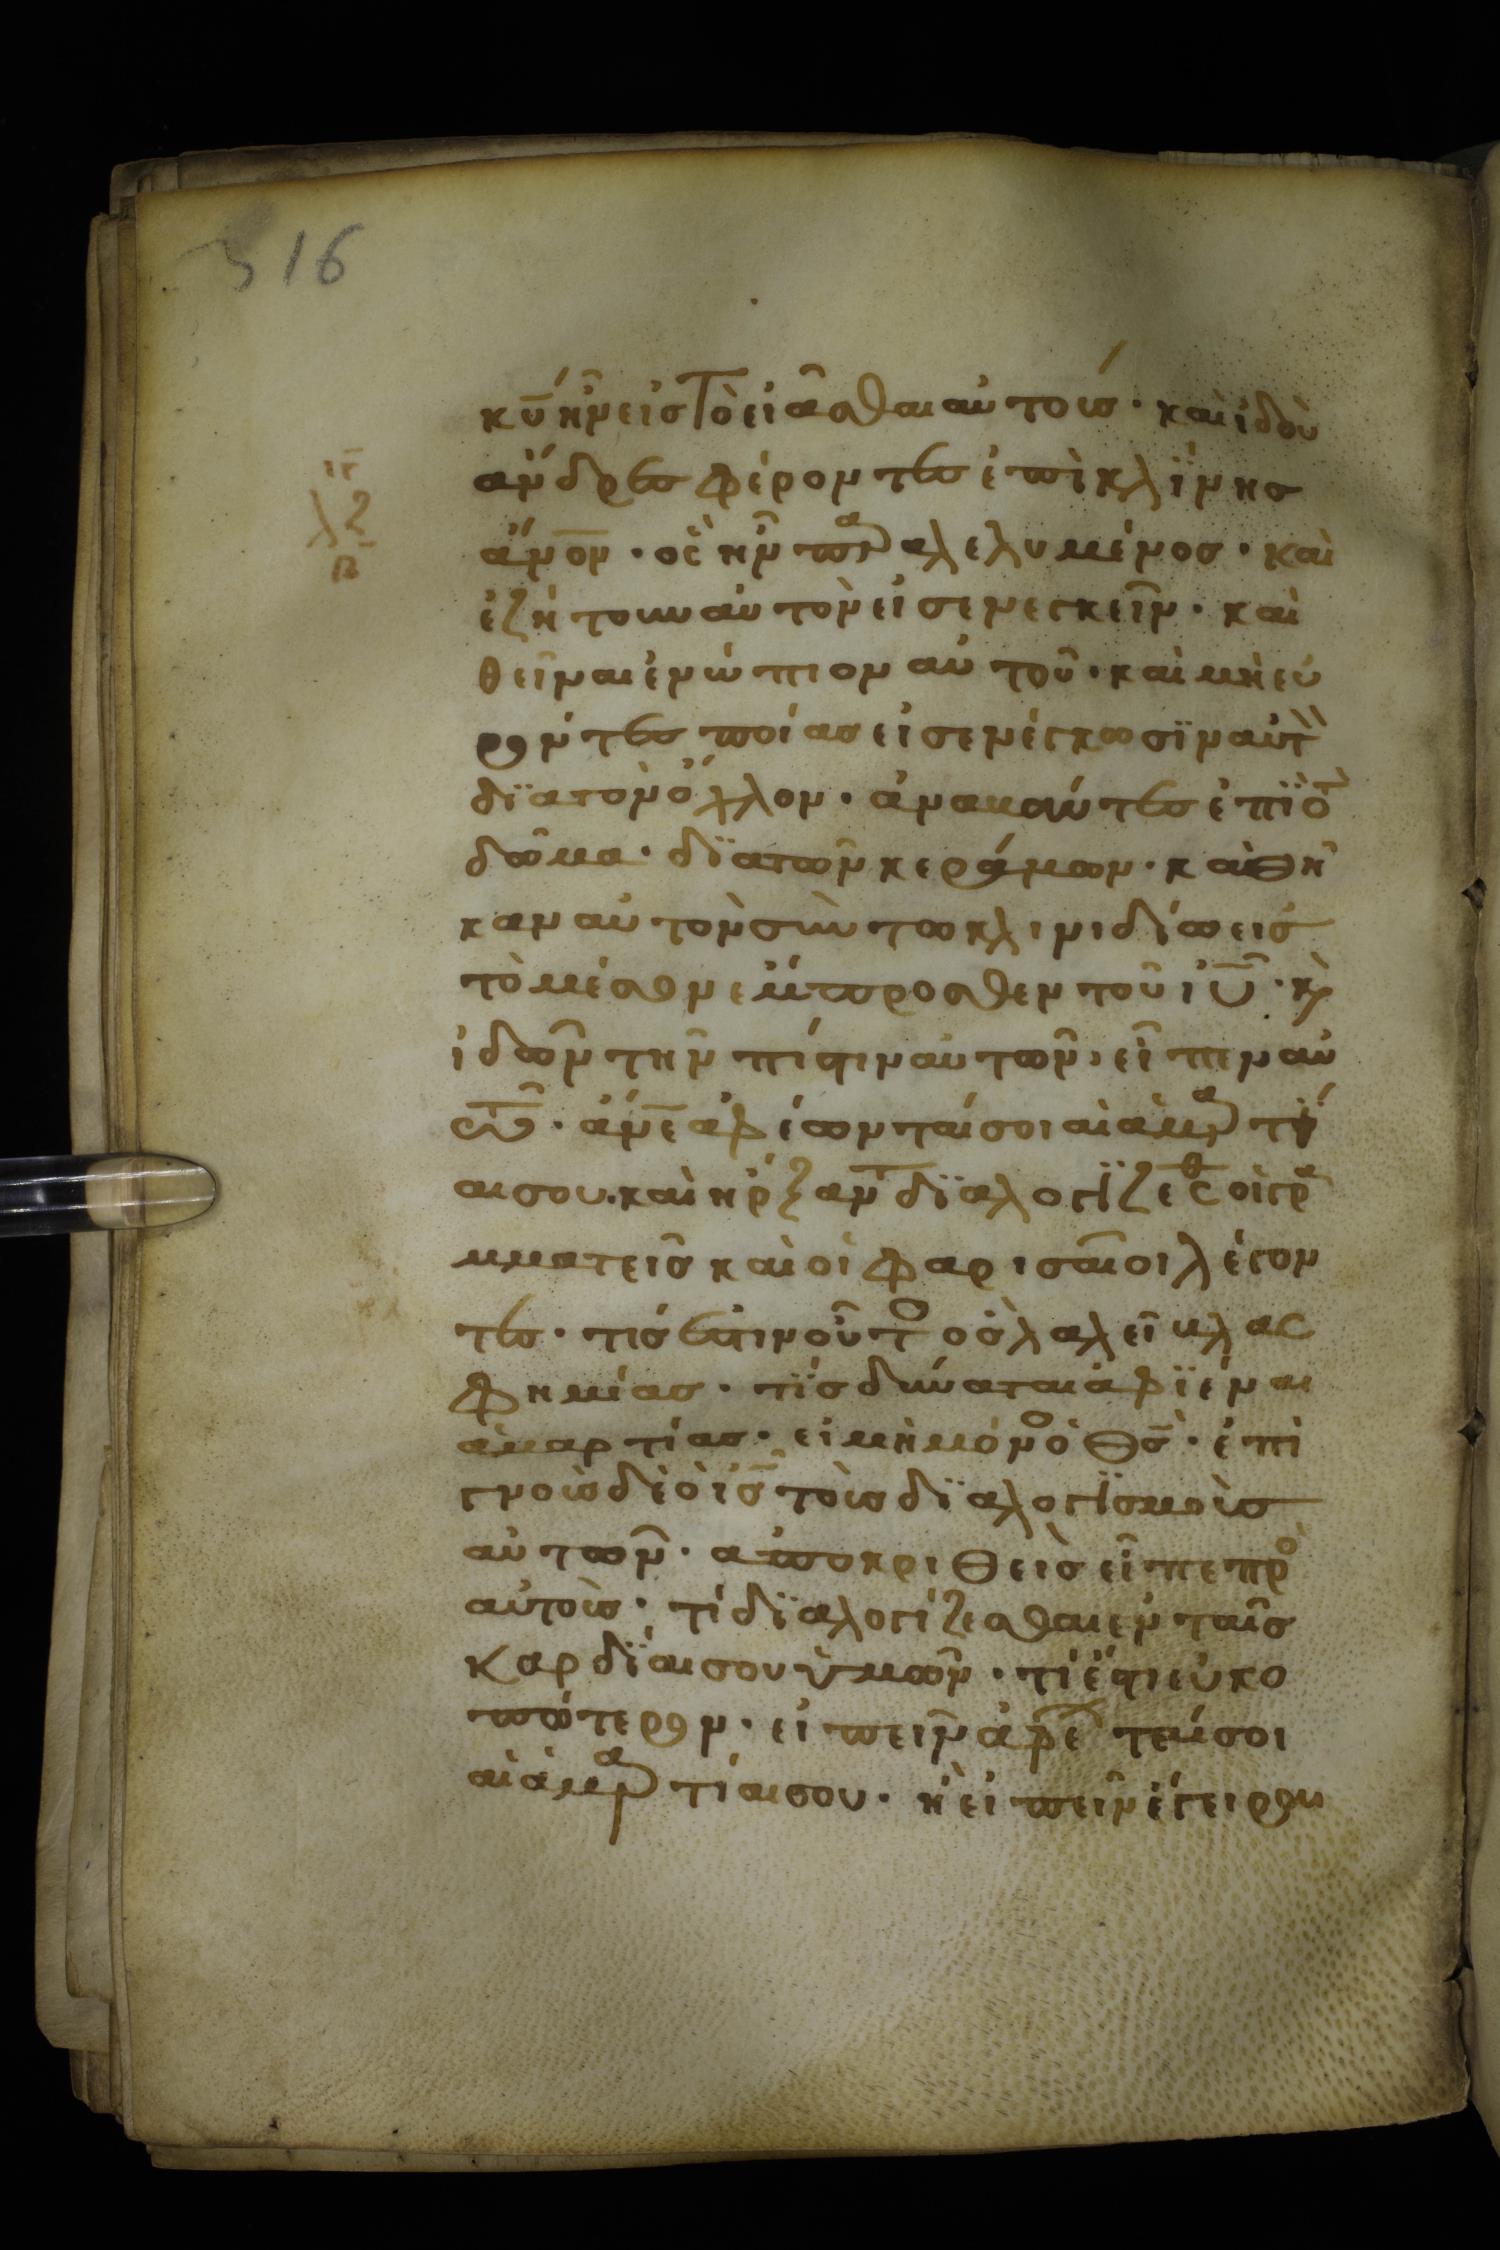 316
κῡ ἦν εἰς τὸ εἰᾶσθαι αὐτούς· καὶ ἰδοὺ
ἄνδρες φέροντες ἐπὶ κλΐνης
ἄν̅ο̅ν· ὃς ἦν παραλελυμένος· καὶ
ἐζήτουν αὐτὸν εἰσενεγκεῖν· καὶ
θεῖναι ἐνώπιον αὐτοῦ· καὶ μὴ εὑ
ρόντες ποίας εἰσενέγκωσϊν αὐτ
δϊα τὸν ὄχλον· ἀναβάντες ἐπϊ τὸ
δῶμα· δϊα τῶν κεράμων· καθῆ
καν αὐτὸν σὺν τω κλινιδίω εἰς
τὸ μέσον ἔμπροσθεν τοῦ ι̅υ̅· κ
ἰδὼν τὴν πίστιν αὐτῶν, εἶπεν αὐ
τω· ἄν̅ε̅ ἀφέωνταί σοι αἱ ἁμαρτί
αι σου. καὶ ἤρξαντ δϊαλογΐζεσθ οἱ γρα
μματεῖς καὶ οἱ φαρισαῖοι λέγον
τες· τίς ἐστιν οὗτο ὃς λαλεῖ βλασ
φημίας· τΐς δύναται ἀφϊέναι
ἁμαρτίας· εἰ μὴ μόνο ὁ θ̅ς̅· ἐπι
γνοὺς δὲ ὁ ι̅ς̅ τοὺς δϊαλογϊσμοὺς
αὐτῶν· ἀποκριθεὶς εἶπε πρὸ
αὐτούς· τί δϊαλογίζεσθαι ἐν ταῖς
καρδΐαις ου ὑμῶν· τί ἔστι εὐκο
πώτερον· εἰπεῖν ἀφέ ταί σοι
αἱ ἁμαρτίαι σου· ἢ εἰπεῖν ἔγειρου